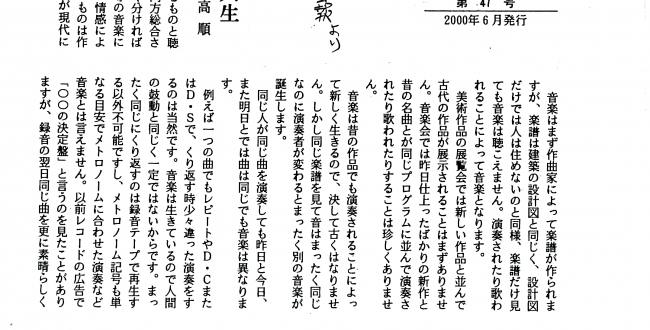 第 47 号
2000年6月発行
より
生
高 順
ものと聴
方総合さ
分ければ
の音楽に
情感によ
ものは作
が現代に
音楽はまず作曲家によって楽譜が作られま
すが、楽譜は建築の設計図と同じく、設計図
だけでは人は住めないのと同様、楽譜だけ見
ても音楽は聴こえません。演奏されたり歌わ
れることによって音楽となります。
美術作品の展覧会では新しい作品と並んで
古代の作品が展示されることはまずありませ
ん。音楽会では昨日仕上ったばかりの新作と
昔の名曲とが同じプログラムに並んで演奏さ
れたり歌われたりすることは珍しくありませ
ん。
音楽は昔の作品でも演奏されることによっ
て新しく生きるので、決して古くはなりませ
ん。しかし同じ楽譜を見て音はまったく同じ
なのに演奏者が変わるとまったく別の音楽が
誕生します。
同じ人が同じ曲を演奏しても昨日と今日、
また明日とでは曲は同じでも音楽は異なりま
す。
例えば一つの曲でもレピートやD・Cまた
はD・Sで、くり返す時少々違った演奏をす
るのは当然です。音楽は生きているので人間
の鼓動と同じく一定ではないからです。まっ
たく同じにくり返すのは録音テープで再生す
る以外不可能ですし、メトロノーム記号も単
なる目安でメトロノームに合わせた演奏など
音楽とは言えません。以前レコードの広告で
「〇〇の決定盤」と言うのを見たことがあり
ますが、録音の翌日同じ曲を更に素晴らしく